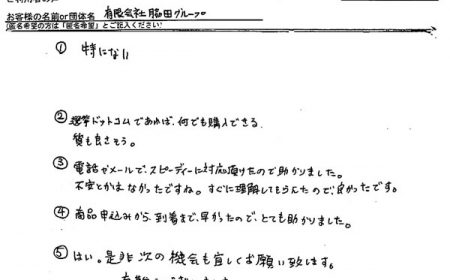 お客様の名前or団体名 有限会社脇田グループ
(匿名希望の方は「匿名希望」とご記入ください)
① 特にない
② 選挙ドットコムであれば、何でも購入できる
質も良さそう。
③ 電話やメールで、スピーディーに対応頂けたので助かりました。
不安とかはなかったですね。すぐに理解してもらえたので、良かったです。
④ 商品申込みから、到着まで、早かったので、とても助かりました。
⑤ はい。是非次の機会も宜しくお願い致します。